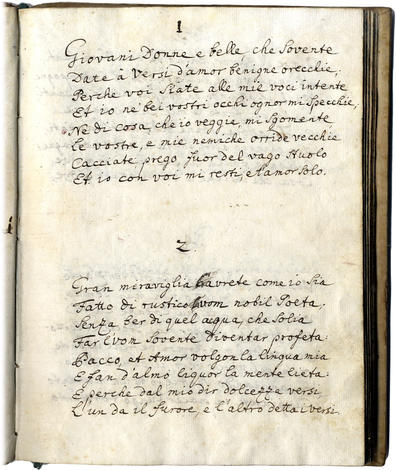 1
Giovani Donne e belle, che sovente
Date à versi d'amor benigne orecchie;
Perche voi siate alle mie voci intente
Et io ne' bei vostri occhi ognor mi specchie,
Ne di cosa, ch'io veggie, mi sgomente
Le vostre, e mie nemiche orride vecchie
Cacciate prego, fuor del vago stuolo
Et io con voi mi resti, et amor solo.
2.
Gran meraviglia havrete come io sia
Fatto di rustico huom nobil Poeta,
Senza ber di quel acqua, che solia
Far l'huom sovente diventar profeta:
Bacco, et Amor volgon la lingua mia
E fan d'almo liquor la mente lieta:
E perche dal mio dir dolcezza versi
L'un da il furore, e l'altro detta i versi.